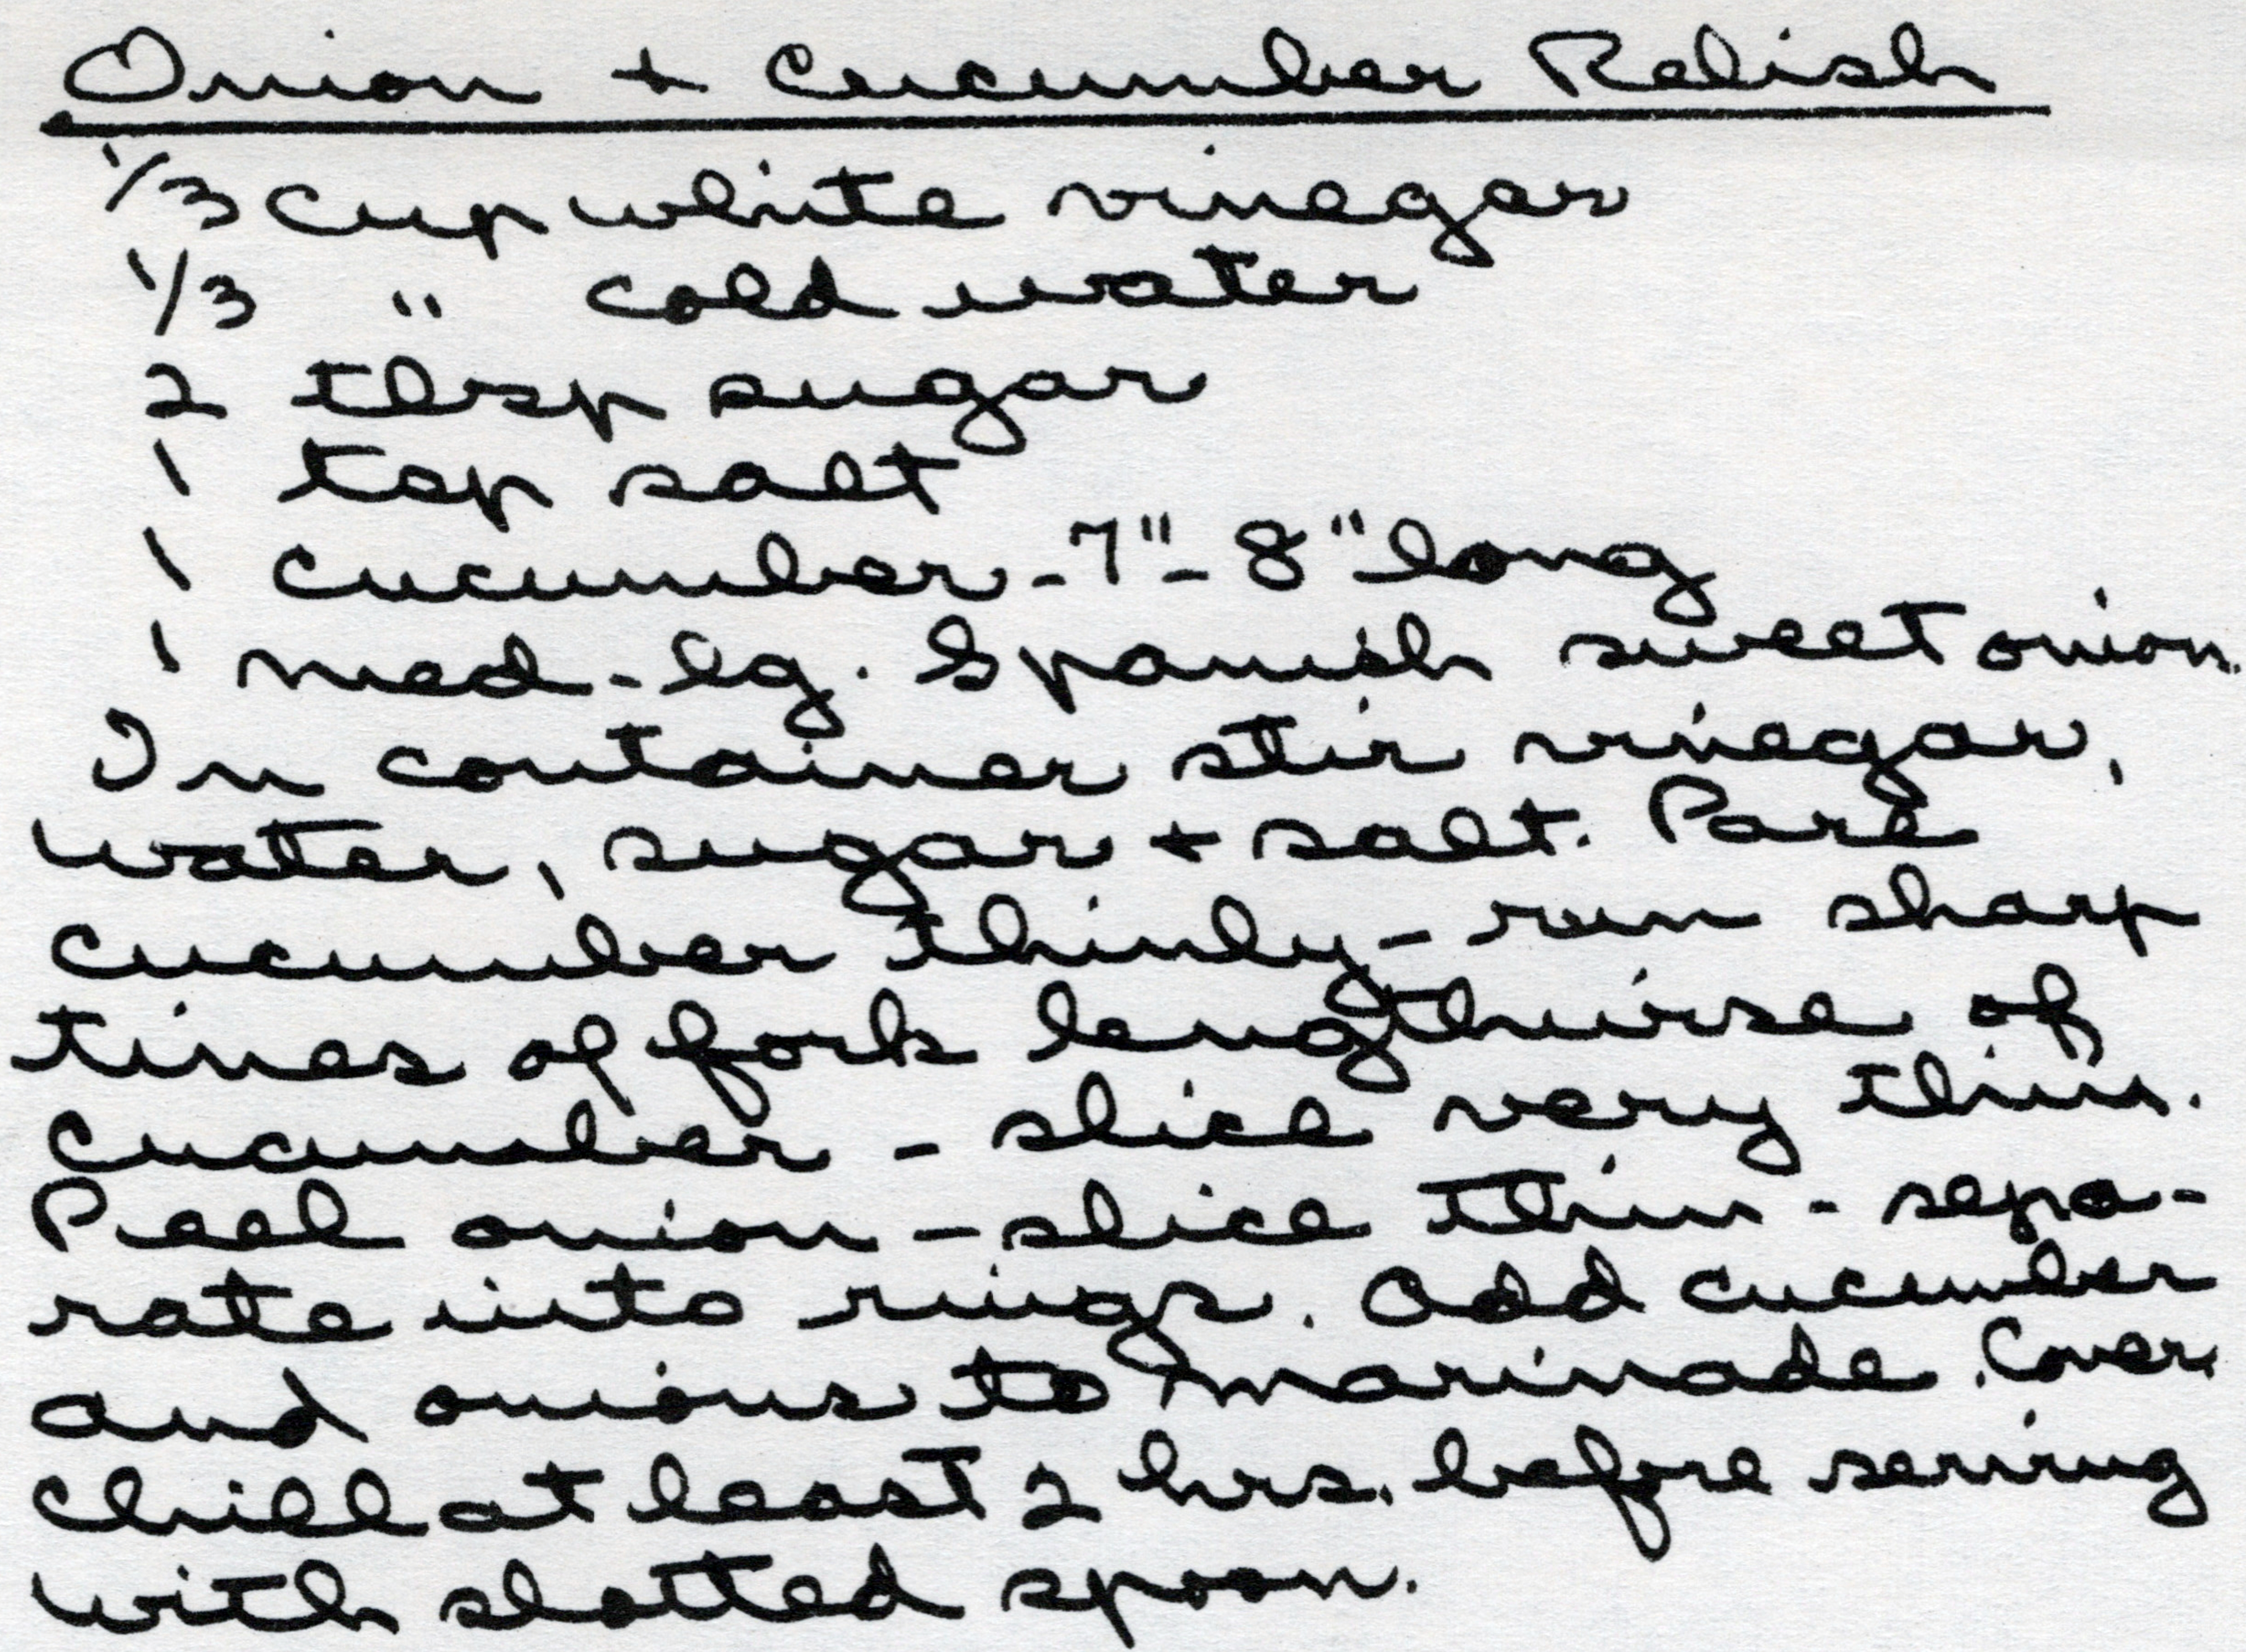 Onion + Cucumber Relish
1/3 cup white vinegar
1/3 " cold water
2 tbsp sugar
1 tsp salt
1 cucumber - 7" - 8" long
1 med - lg. Spanish sweet onion.
In container stir vinegar,
water, sugar + salt. Pare
cucumber thinly - run sharp
tines of fork lengthwise of
cucumber - slice very thin.
Peel onion - slice thin - sepa-
rate into rings. Add cucumber
and onions to marinade. Cover,
chill at least 2 hrs. before serving
with slotted spoon.